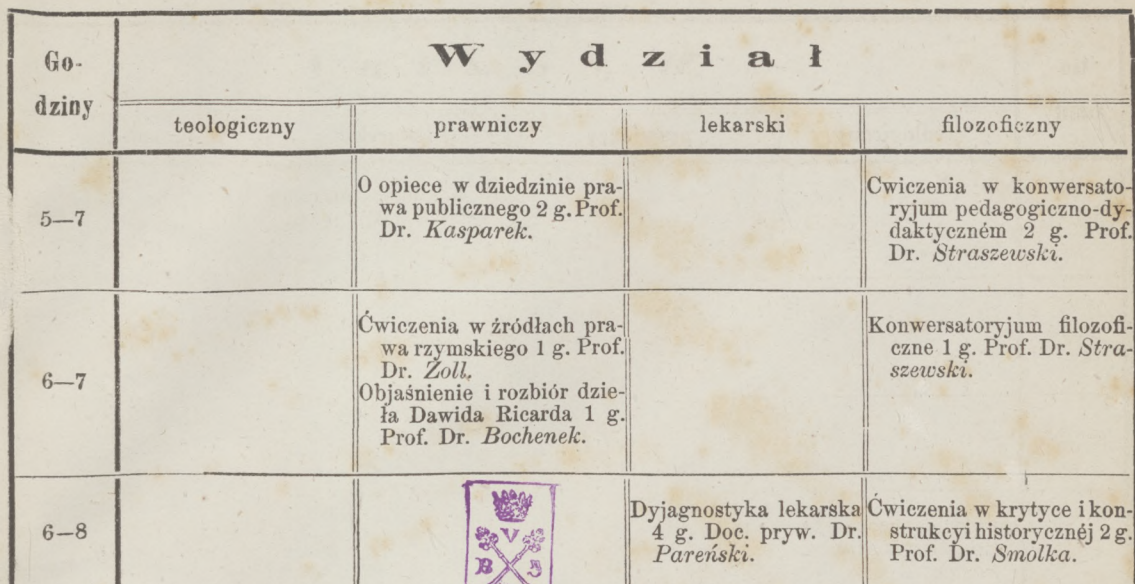 Go-
dziny
Wydział
teologiczny
prawniczy
lekarski
filozoficzny
5—7
O opiece w dziedzinie pra-
wa publicznego 2 g. Prof.
Dr. Kasparek.
Cwiczenia w konwersato-
ryjum pedagogiczno-dy-
daktyczném 2 g. Prof.
Dr. Straszewski.
6—7
Ćwiczenia w źródłach pra-
wa rzymskiego 1 g. Prof.
Dr. Zoll.
Objaśnienie i rozbiór dzie-
ła Dawida Ricarda 1 g.
Prof. Dr. Bochenek.
Konwersatoryjum filozofi-
czne 1 g. Prof. Dr. Stra-
szewski.
6—8
Dyjagnostyka lekarska
4 g. Doc. pryw. Dr.
Pareński.
Ćwiczenia w krytyce i kon-
strukcyi historycznéj 2 g.
Prof. Dr. Smolka.
V
B J